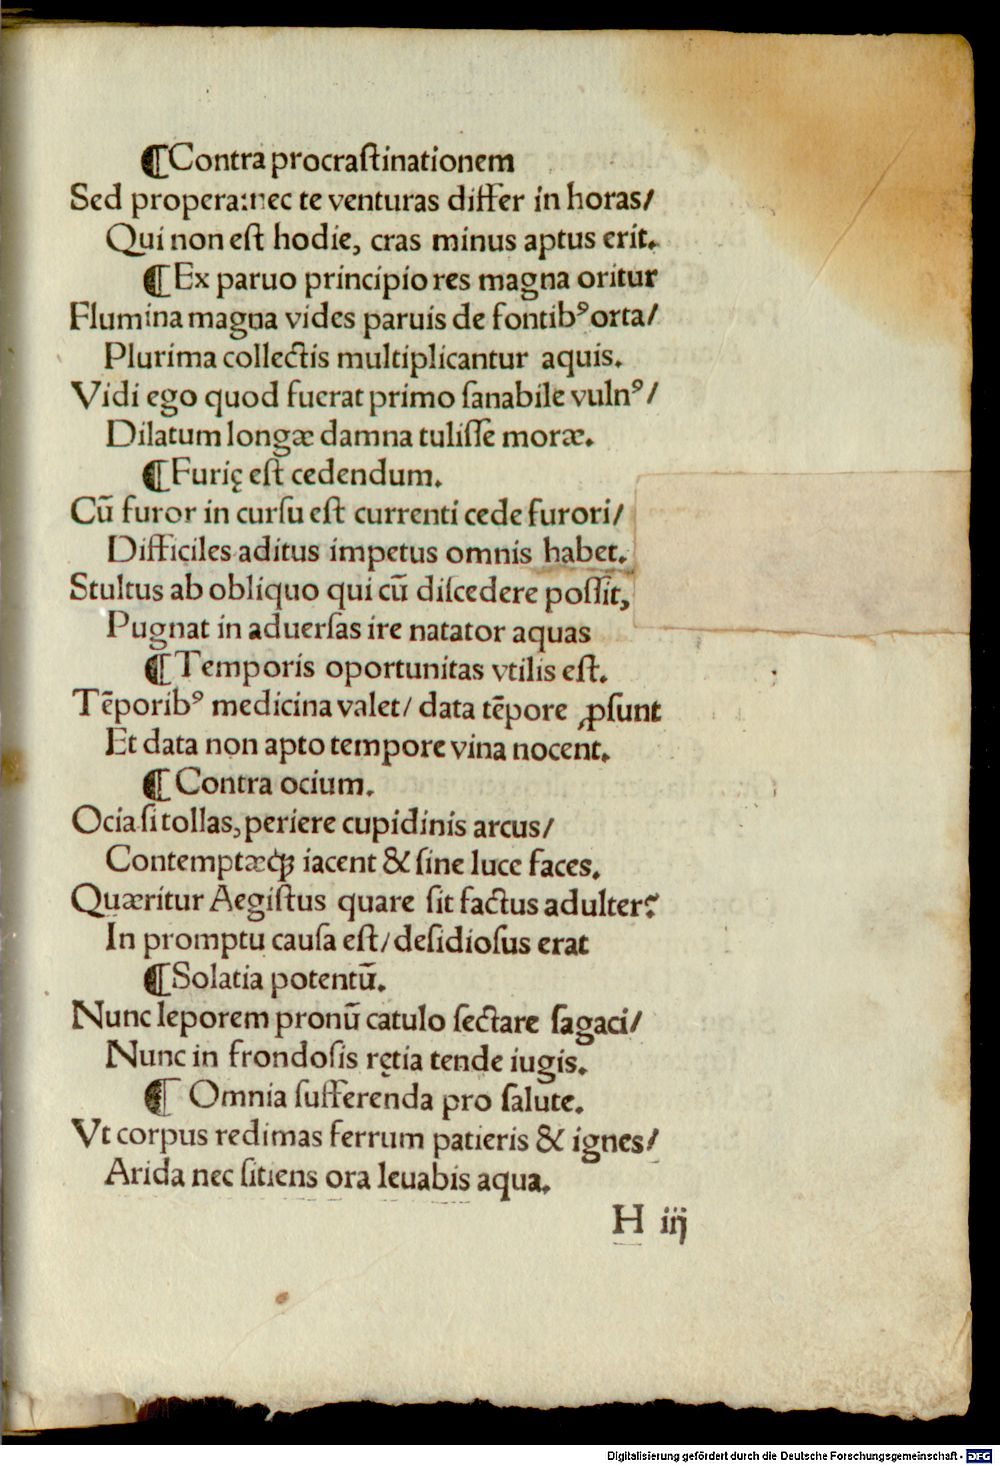 ¶Contra procraſtinationem
Sed propera:nec te venturas differ in horas/
Qui non eſt hodie, cras minus aptus erit.
¶Ex paruo principio res magna oritur
Flumina magna vides paruis de fontibꝰ orta/
Plurima collectis multiplicantur aquis.
Vidi ego quod fuerat primo ſanabile vulnꝰ/
Dilatum longæ damna tuliſſe moræ.
¶Furię eſt cedendum.
Cū furor in curſu eſt currenti cede furori/
Difficiles aditus impetus omnis habet.
Stultus ab obliquo qui cū diſcedere poſſit,
Pugnat in aduerſas ire natator aquas
¶Temporis oportunitas vtilis eſt.
Tēporibꝰ medicina valet/ data tēpore ꝓſunt
Et data non apto tempore vina nocent.
¶Contra ocium.
Ocia ſi tollas, periere cupidinis arcus/
Contemptæqꝫ iacent & ſine luce faces.
Quæritur Aegiſtus quare ſit factus adulter?
In promptu cauſa eſt/ deſidioſus erat
¶Solatia potentū.
Nunc leporem pronū catulo ſectare ſagaci/
Nunc in frondoſis rętia tende iugis.
¶ Omnia ſufferenda pro ſalute.
Vt corpus redimas ferrum patieris & ignes/
Arida nec ſitiens ora leuabis aqua.
H iij
Digitalisierung gefördert durch die Deutsche Forschungsgemeinschaft - DFG